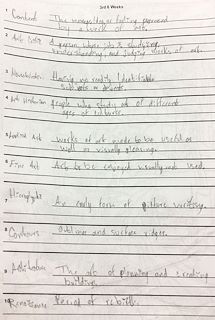 3rd 6 Weeks
1 Content The message, idea or feeling expressed
by a work of art.
2 Art Critic A person whose job is studying,
understanding, and judging works of art.
3 Having no easily identifiable
subjects or objects.
4 Art Historian People who study art of different
ages or cultures.
5 Applied Art works of art made to be useful as
well as visually pleasing.
6 Fine Art Art to be enjoyed visually not used.
7 An early form of picture writing.
8 Contours Outlines and surface ridges.
9 Architecture The art of planning and creating
buildings.
10 Renaissance Period of rebirth.